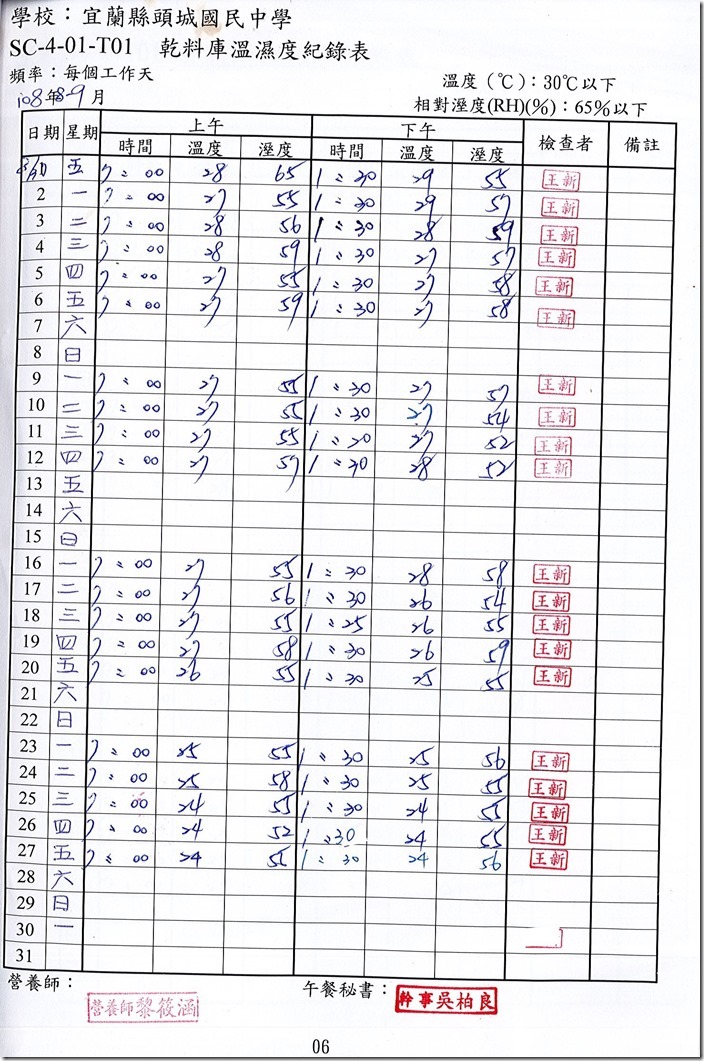 學校：宜蘭縣頭城國民中學
SC-4-01-T01 乾料庫溫濕度紀錄表
頻率：每個工作天
溫度（℃）：30℃以下
108年8-9月
相對溼度(RH)(%)：65%以下
日期 星期 上午 下午 檢查者 備註
時間 溫度 溼度 時間 溫度 溼度
8/30 五 7:00 28 65 1:30 29 55 王新
2 一 7:00 27 55 1:30 29 57 王新
3 二 7:00 28 56 1:30 28 59 王新
4 三 7:00 28 59 1:30 27 57 王新
5 四 7:00 27 55 1:30 27 58 王新
6 五 7:00 27 59 1:30 27 58 王新
7 六
8 日
9 一 7:00 27 55 1:30 27 57 王新
10 二 7:00 27 55 1:30 27 54 王新
11 三 7:00 27 55 1:20 27 52 王新
12 四 7:00 27 57 1:30 28 52 王新
13 五
14 六
15 日
16 一 7:00 27 55 1:30 28 58 王新
17 二 7:00 27 56 1:30 26 54 王新
18 三 7:00 27 55 1:25 26 55 王新
19 四 7:00 27 58 1:30 26 59 王新
20 五 7:00 26 55 1:30 25 55 王新
21 六
22 日
23 一 7:00 25 55 1:30 25 56 王新
24 二 7:00 25 58 1:30 25 55 王新
25 三 7:00 24 55 1:30 24 55 王新
26 四 7:00 24 52 1:30 24 55 王新
27 五 7:00 24 55 1:30 24 56 王新
28 六
29 日
30 一
31
營養師： 午餐秘書：
營養師黎筱涵 幹事吳柏良
06